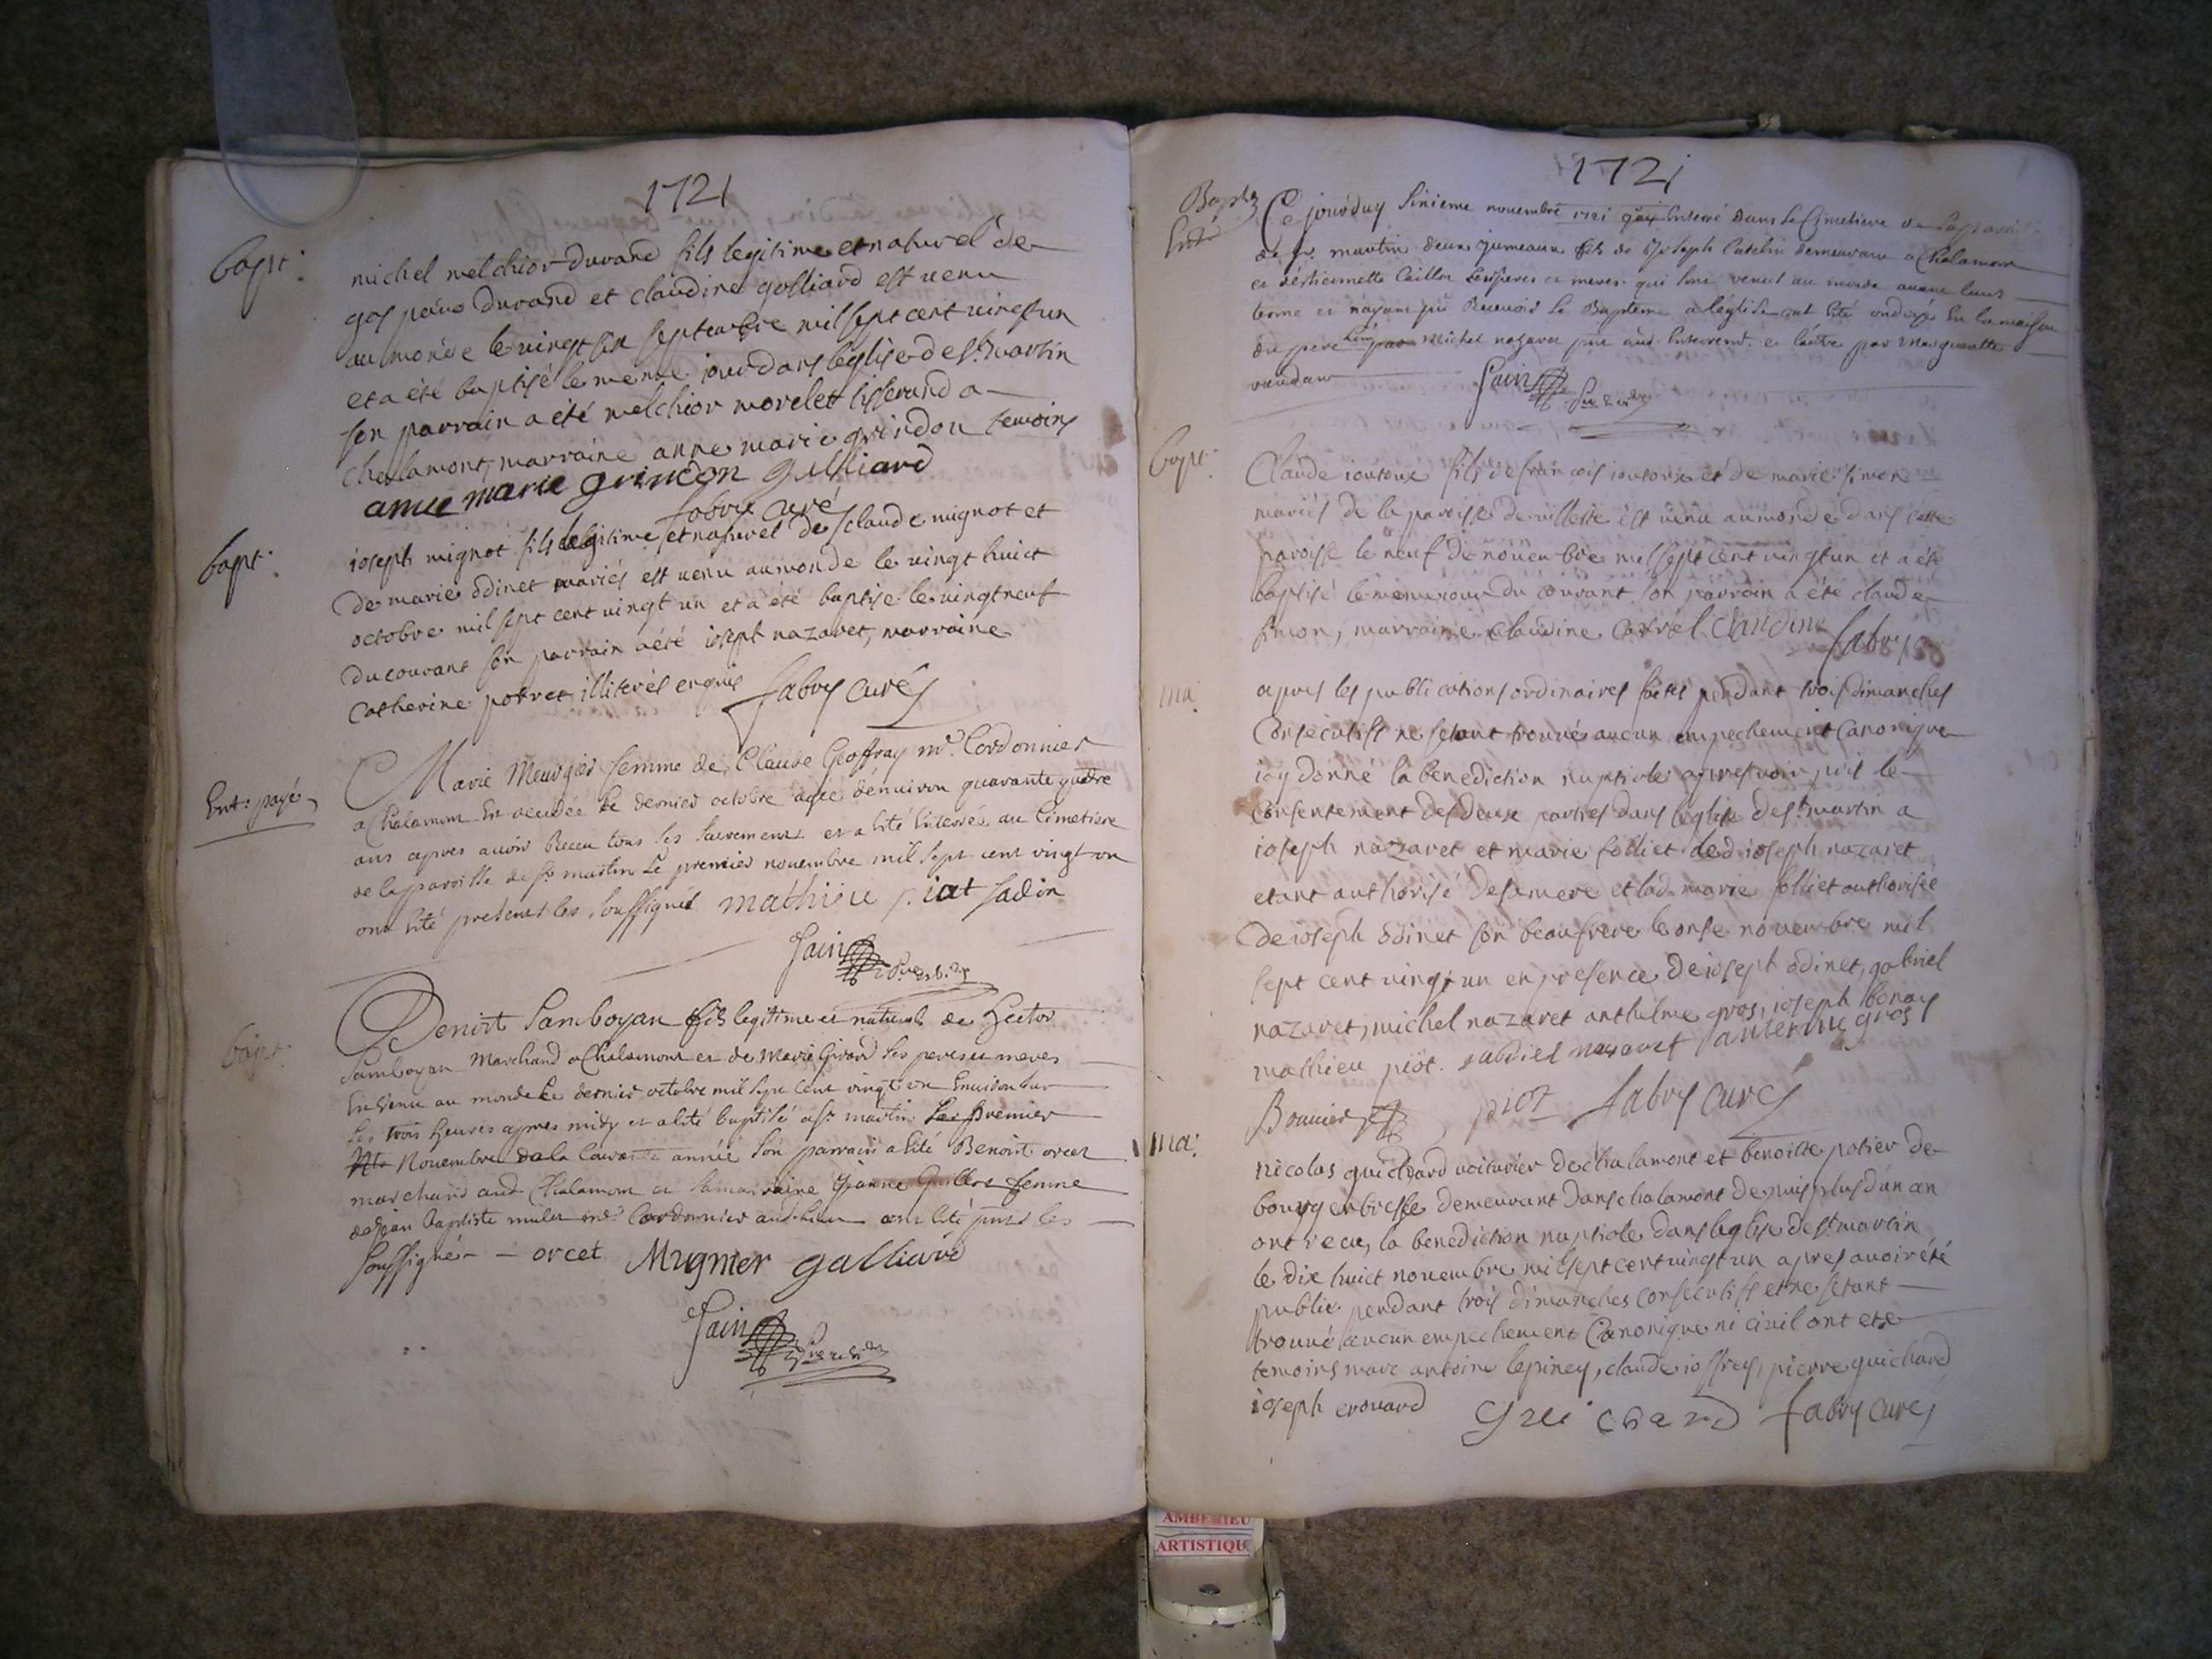 1721
bapt:
michel melchior durand fils legitime et naturel de
durand et claudine golliard est venu
au monde le vingt six septembre mil sept cent vingt un
et a été baptisé le meme jour dans leglise de st martin
son parrain a été melchior morelet tisserand a
chalamont, marraine anne marie grindon temoins
anne marie grindon golliard
fabry curé
bapt:
ioseph mignot fils legitime et naturel de claude mignot et
de marie odinet mariés est venu au monde le vingt huict
octobre mil sept cent vingt un et a été baptise le vingt neuf
du courant son parrain a été ioseph nazaret, marraine
catherine potret illiterés enquis fabry curé
Ent: payé
Marie femme de Claude Geoffray mr. Cordonnier
a Chalamont Est decedée le dernier octobre agée denuiron quarante quatre
ans apres auoir Receu tous les sacremens et a Eté Enterrée au Cimetiere
de la paroisse de st. martin Le premier nouembre mil sept cent vingt un
ont Eté presents les soussignés mathieu piat sadin
Jain
bapt:
Benoit Samboyan fils legitime et naturel de Hector
Samboyan Marchand a Chalamont et de Marie Girard ses pere et mere
Est venu au monde le dernier octobre mil sept cent vingt un Enuiron sur
les trois heures apres midy et a Eté baptisé a st. martin Le premier
Nouembre de la Courante année son parrain a Eté Benoit orcet
marchand aud Chalamont et sa maraine Jeanne femme
de Jean baptiste mr. Cordonnier aud. lieu ont Eté les
soussignés orcet Mugnier galliard
Jain
1721
Bapt
Enté
Ce jourduy Sixieme nouembre 1721 Enterré dans Le Cimetiere de La paroisse
de st. martin deux jumeaux fils de Joseph Catelin demeurant a Chalamont
et d'Estiennette Caillon Les peres et meres qui sont venus au monde auant leurs
terme et n'ayant pu Receuoir Le Bapteme a l'église ont Eté ondoyé En la maison
du pere Lun par Michel nazaret et l'autre par Marguerite
Jain
bapt:
Claude fils de francois et de marie simon
mariés de la paroisse de est venu au monde dans cette
paroisse le neuf de nouembre mil sept cent vingt un et a été
baptisé le meme iour du courant son parrain a été claude
simon, marraine claudine claudine
fabry
ma:
apres les publications ordinaires faites pendant trois dimanches
consecutifs ne setant trouué aucun empechement canonique
iay donné la benediction nuptiale apres auoir pris le
consentement des deux parties dans leglise de st. martin a
ioseph nazaret et marie folliet led ioseph nazaret
etant authorisé de sa mere et lad. marie folliet authorisée
de ioseph odinet son beau frere le onse nouembre mil
sept cent vingt un en presence de ioseph odinet, gabriel
nazaret, michel nazaret anthelme gros, ioseph bonay
mathieu piot. gabriel nazaret anterme gros
Bonnier piot fabry curé
ma:
nicolas guichard voiturier de chalamont et benoitte potier de
bourg en bresse demeurant dans chalamont depuis plus d'un an
ont receu la benediction nuptiale dans leglise de st. martin
le dix huict nouembre mil sept cent vingt un apres auoir été
publie pendant trois dimanches consecutifs et ne setant
trouué aucun empechement Canonique ni ciuil ont ete
temoins marc antoine lepiney, claude ioffrey, pierre guichard
ioseph erouard guichard fabry curé
AMBERIEU
ARTISTIQU